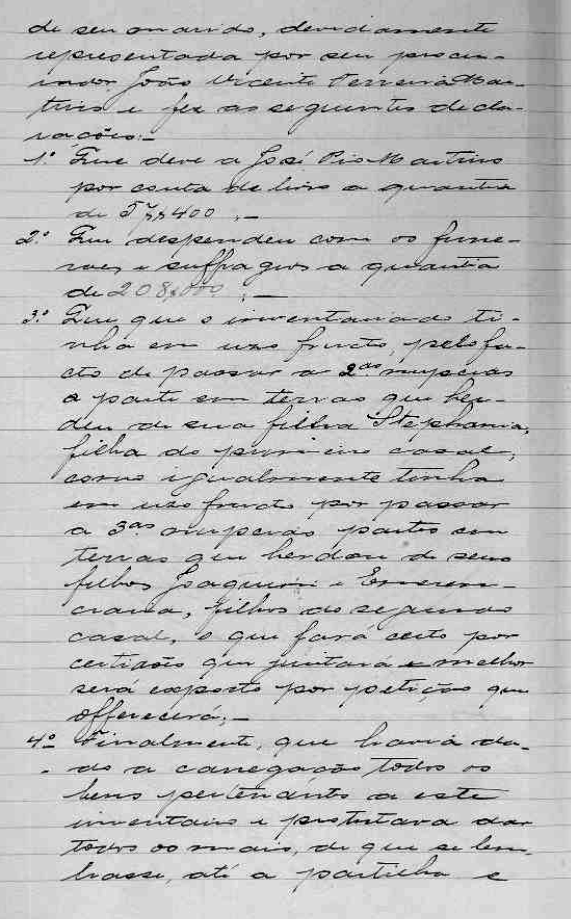 de seu marido, devidamente
representada por seu procu-
rador João Vicente Ferreira Mar-
tins e fez as seguintes decla-
rações:-
1º Que deve a José Pio Martins
por conta de livro a quantia
de 400 ;-
2º Que despendeu com os fune-
raes e suffragios a quantia
de 208$000 ;-
3º Que que o inventariado ti-
nha em uzo fructo, pelo fa-
cto de passar a 2as nupcias
a parte em terras que her-
dou de sua filha Stephania,
filha do primeiro casal,
como igualmente tinha
em uzo fructo por passar
a 3as nupcias partes em
terras que herdou de seus
filhos Joaquim e Emeren-
ciana, filhos do segundo
casal, o que fará certo por
certidões que juntará e melhor
será exposto por petição que
offerecerá;-
4º Finalmente, que havia da-
do a carregação todos os
bens pertencentes a este
inventario e protestava dar
todos os mais, de que se lem-
brasse, até a partilha e